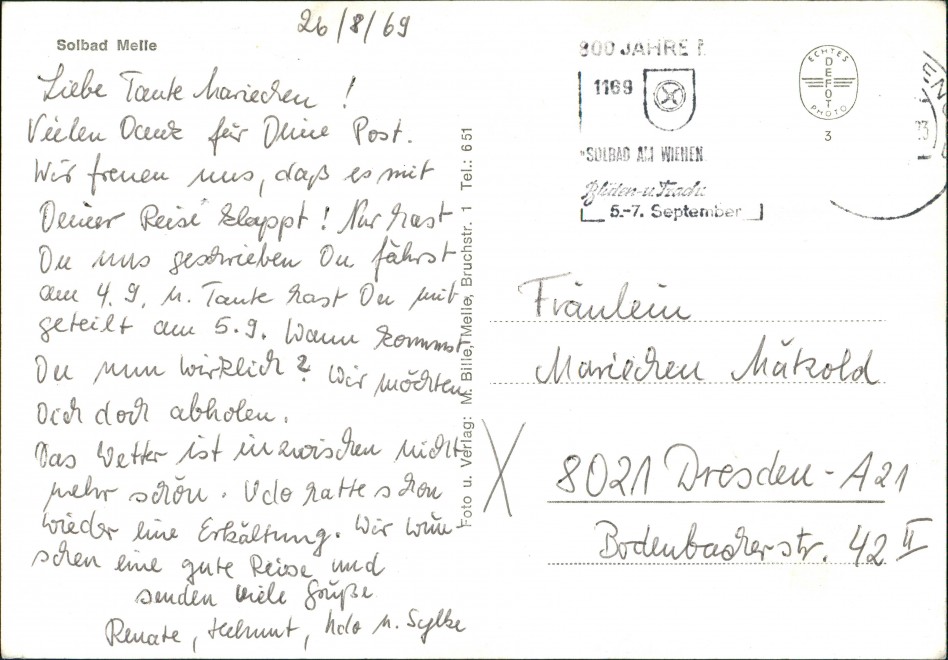 26/8/69
Solbad Melle
Liebe Tante Mariechen!
Vielen Dank für Deine Post.
Wir freuen uns, daß es mit
Deiner Reise klappt! Nur hast
Du uns geschrieben Du fährst
am 4.9. u. Tante hast Du mit
geteilt am 5.9. Wann kommst
Du nun wirklich? Wir möchten
Dich doch abholen.
Das Wetter ist inzwischen nicht
mehr schön. Udo hatte schon
wieder eine Erkältung. Wir wün-
schen eine gute Reise und
senden viele Grüße
Renate, Helmut, Udo u. Sylke
Foto u. Verlag: M. Bille, Melle, Bruchstr. 1 Tel.: 651
800 JAHRE
1169
SOLBAD AM WIEHEN
Blüten-u.Trach
5.-7. September
ECHTES
DEFOT
PHOTO
3
23
Fräulein
Mariechen Mätzold
8021 Dresden-A21
Bodenbacherstr. 42 II